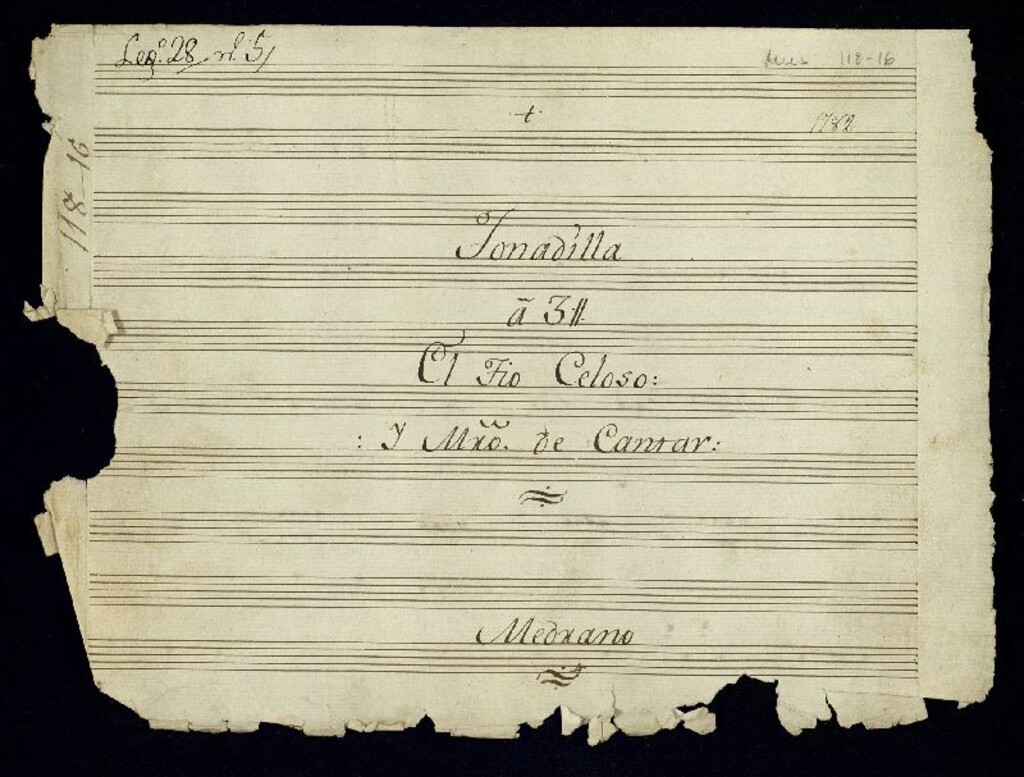 Leg.º 28 n.º 5
Mus 118-16
+
1782
118-16
Tonadilla
a 3
El Tio Celoso:
: Y Mro. de Cantar:
Medrano